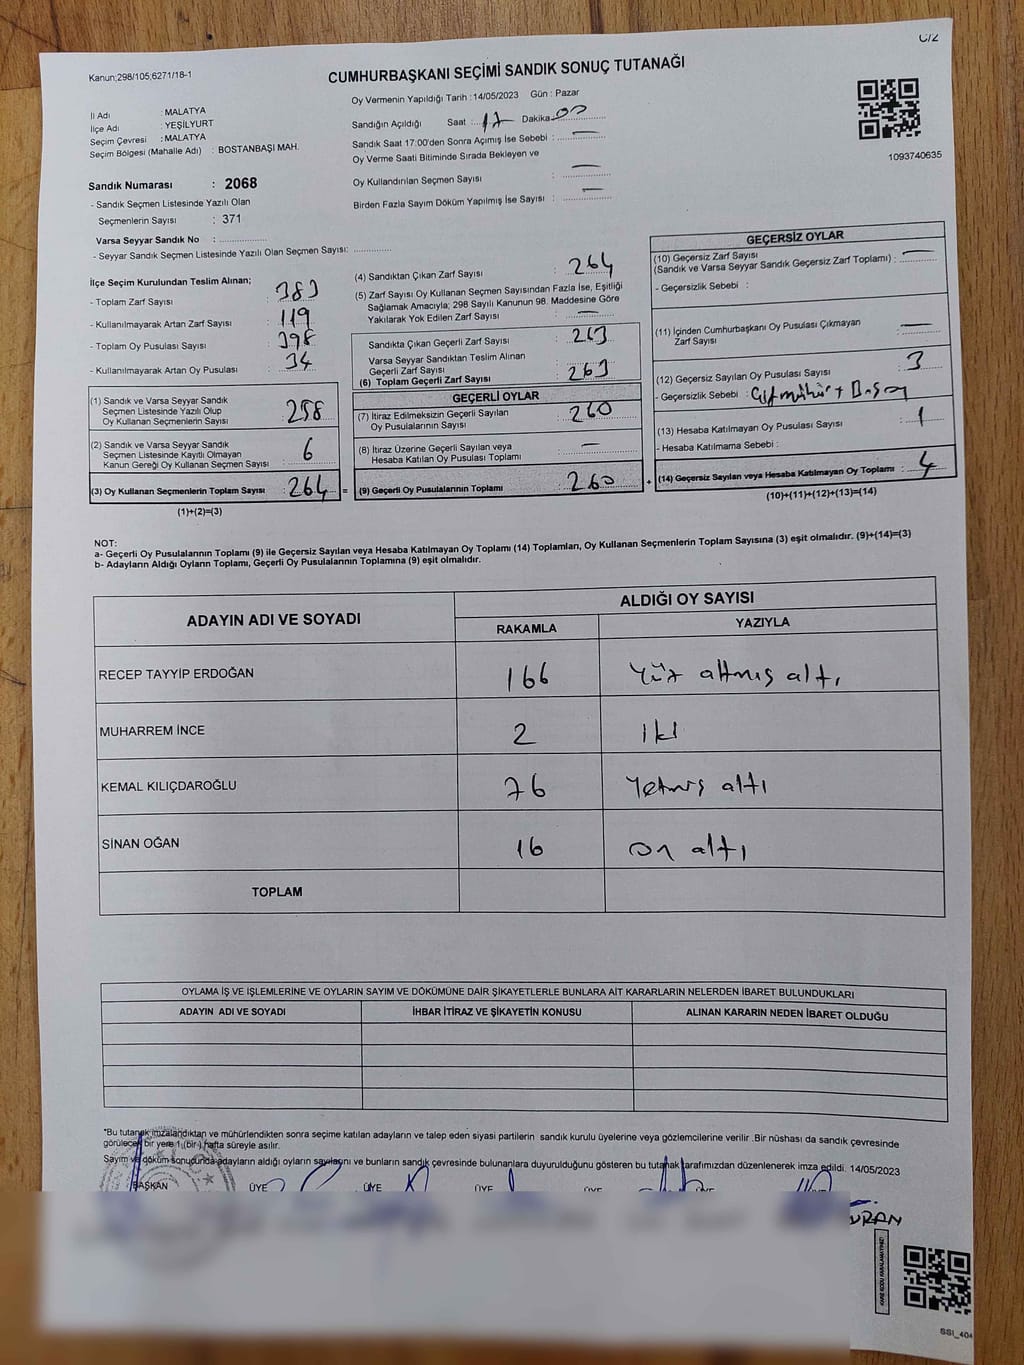 C/2
Kanun;298/105;6271/18-1
CUMHURBAŞKANI SEÇİMİ SANDIK SONUÇ TUTANAĞI
İl Adı : MALATYA
İlçe Adı : YEŞİLYURT
Seçim Çevresi : MALATYA
Seçim Bölgesi (Mahalle Adı) : BOSTANBAŞI MAH.
Sandık Numarası : 2068
- Sandık Seçmen Listesinde Yazılı Olan
Seçmenlerin Sayısı : 371
Varsa Seyyar Sandık No : ....................
- Seyyar Sandık Seçmen Listesinde Yazılı Olan Seçmen Sayısı: ............
Oy Vermenin Yapıldığı Tarih :14/05/2023 Gün : Pazar
Sandığın Açıldığı Saat : 17 Dakika 00
Sandık Saat 17:00'den Sonra Açımış İse Sebebi : —
Oy Verme Saati Bitiminde Sırada Bekleyen ve
Oy Kullandırılan Seçmen Sayısı : —
Birden Fazla Sayım Döküm Yapılmış İse Sayısı : —
1093740635
İlçe Seçim Kurulundan Teslim Alınan;
- Toplam Zarf Sayısı : 383
- Kullanılmayarak Artan Zarf Sayısı : 119
- Toplam Oy Pusulası Sayısı : 398
- Kullanılmayarak Artan Oy Pusulası : 34
(1) Sandık ve Varsa Seyyar Sandık
Seçmen Listesinde Yazılı Olup
Oy Kullanan Seçmenlerin Sayısı : 258
(2) Sandık ve Varsa Seyyar Sandık
Seçmen Listesinde Kayıtlı Olmayan
Kanun Gereği Oy Kullanan Seçmen Sayısı : 6
(3) Oy Kullanan Seçmenlerin Toplam Sayısı : 264 =
(1)+(2)=(3)
(4) Sandıktan Çıkan Zarf Sayısı : 264
(5) Zarf Sayısı Oy Kullanan Seçmen Sayısından Fazla İse, Eşitliği
Sağlamak Amacıyla; 298 Sayılı Kanunun 98. Maddesine Göre
Yakılarak Yok Edilen Zarf Sayısı : —
Sandıkta Çıkan Geçerli Zarf Sayısı : 263
Varsa Seyyar Sandıktan Teslim Alınan
Geçerli Zarf Sayısı
(6) Toplam Geçerli Zarf Sayısı : 263
GEÇERLİ OYLAR
(7) İtiraz Edilmeksizin Geçerli Sayılan
Oy Pusulalarının Sayısı : 260
(8) İtiraz Üzerine Geçerli Sayılan veya
Hesaba Katılan Oy Pusulası Toplamı : —
(9) Geçerli Oy Pusulalarının Toplamı : 260 +
GEÇERSİZ OYLAR
(10) Geçersiz Zarf Sayısı
(Sandık ve Varsa Seyyar Sandık Geçersiz Zarf Toplamı) : —
- Geçersizlik Sebebi :
(11) İçinden Cumhurbaşkanı Oy Pusulası Çıkmayan
Zarf Sayısı : —
(12) Geçersiz Sayılan Oy Pusulası Sayısı : 3
- Geçersizlik Sebebi :
(13) Hesaba Katılmayan Oy Pusulası Sayısı : 1
- Hesaba Katılmama Sebebi :
(14) Geçersiz Sayılan veya Hesaba Katılmayan Oy Toplamı : 4
(10)+(11)+(12)+(13)=(14)
NOT:
a- Geçerli Oy Pusulalarının Toplamı (9) ile Geçersiz Sayılan veya Hesaba Katılmayan Oy Toplamı (14) Toplamları, Oy Kullanan Seçmenlerin Toplam Sayısına (3) eşit olmalıdır. (9)+(14)=(3)
b- Adayların Aldığı Oyların Toplamı, Geçerli Oy Pusulalarının Toplamına (9) eşit olmalıdır.
ADAYIN ADI VE SOYADI ALDIĞI OY SAYISI
RAKAMLA YAZIYLA
RECEP TAYYİP ERDOĞAN 166 Yüz altmış altı
MUHARREM İNCE 2 iki
KEMAL KILIÇDAROĞLU 76 Yetmiş altı
SİNAN OĞAN 16 on altı
TOPLAM
OYLAMA İŞ VE İŞLEMLERİNE VE OYLARIN SAYIM VE DÖKÜMÜNE DAİR ŞİKAYETLERLE BUNLARA AİT KARARLARIN NELERDEN İBARET BULUNDUKLARI
ADAYIN ADI VE SOYADI İHBAR İTİRAZ VE ŞİKAYETİN KONUSU ALINAN KARARIN NEDEN İBARET OLDUĞU
*Bu tutanak imzalandıktan ve mühürlendikten sonra seçime katılan adayların ve talep eden siyasi partilerin sandık kurulu üyelerine veya gözlemcilerine verilir .Bir nüshası da sandık çevresinde
görülecek bir yere 1 (bir) hafta süreyle asılır.
Sayım ve döküm sonucunda adayların aldığı oyların sayılarını ve bunların sandık çevresinde bulunanlara duyurulduğunu gösteren bu tutanak tarafımızdan düzenlenerek imza edildi. 14/05/2023
BAŞKAN ÜYE ÜYE ÜYE ÜYE ÜYE
KARE KODU KARALAMAYINIZ!
SSI_404